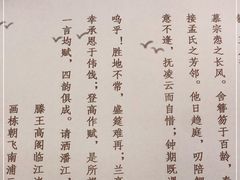 慕宗悫之长风。舍簪笏于百
接孟氏之芳邻。他日趋庭，叨陪
意不逢，抚凌云而自惜；钟期既
呜乎！胜地不常，盛筵难再；兰
幸承恩于伟饯；登高作赋，是所
一言均赋，四韵俱成。请洒潘江，
滕王高阁临江
画栋朝飞南浦